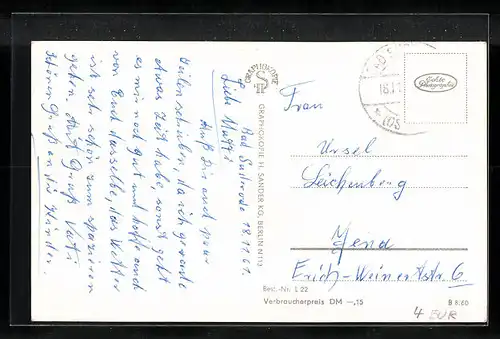 Bad Suderode 18.11.61.
Liebe Mutti!
Muß Dir auch paar
Zeilen schreiben, da ich gerade
etwas Zeit habe, sonst geht
es mir noch gut und hoffe auch
von Euch dasselbe, das Wetter
ist sehr schön zum spazieren
gehen. Sonst Gruß Vati
schönen Gruß an die Kinder.
GRAPHOKOPIE
GRAPHOKOPIE H. SANDER KG, BERLIN N 113
18.1
Echte Photographie
Frau
Ursel
Leichenberg
Jena
Erich-Weinertstr. 6
Best.-Nr. L 22
Verbraucherpreis DM –,15
B 8/60
4 EUR